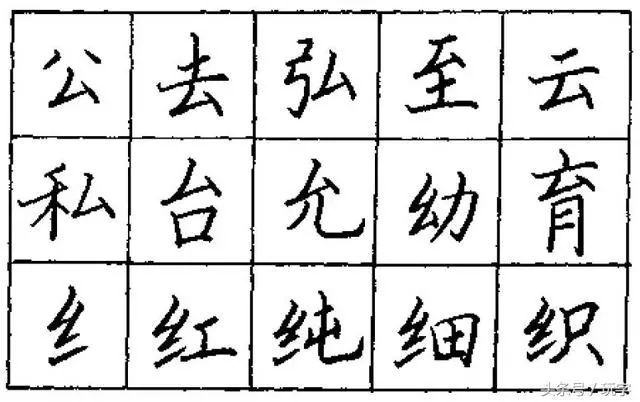 公去弘至云
私台允幼育
纟红纯细织
头条号/玩字